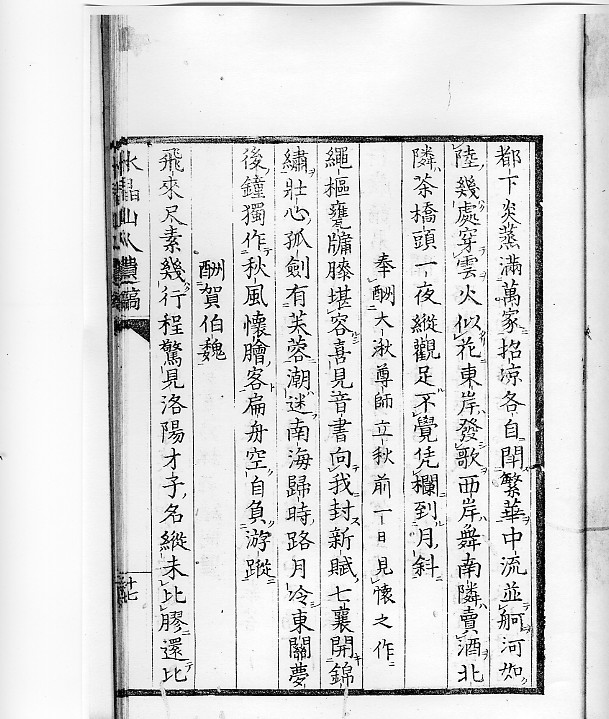 都下炎蒸滿萬家招涼各自鬧繁華中流並舸河如
陸幾處穿雲火似花東岸發歌西岸舞南隣賣酒北
隣茶橋頭一夜縱觀足不覺凭欄到月斜
奉酬大湫尊師立秋前一日見懷之作
繩樞甕牖膝堪容喜見音書向我封新賦七襄開錦
繡壯心孤劍有芙蓉潮迷南海歸時路月冷東關夢
後鐘獨作秋風懷膾客扁舟空自負游蹤
酬賀伯魏
飛來尺素幾行程驚見洛陽才子名縱未比膠還比
水晶山人遺稿
十七